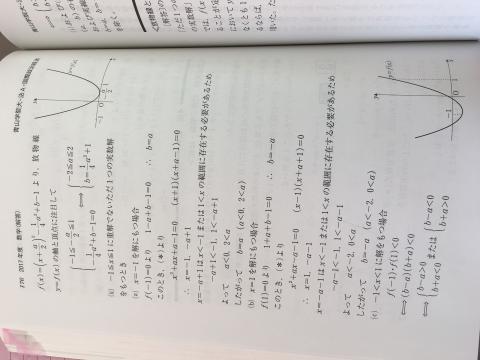 276 2017年度 数学〈解答〉
青山学院大-法A・国際政治経済
f(x)=(x+a/2)²-1/4a²+b-1 より，放物線
y=f(x)の軸と頂点に注目して
{-1≦-a/2≦1
-1/4a²+b-1=0
⇔ {-2≦a≦2
b=1/4a²+1
(ii) -1≦x≦1に重解でないただ1つの実数解
をもつとき
(a) x=-1を解にもつ場合
f(-1)=0より 1-a+b-1=0 ∴ b=a
このとき，(*)より
x²+ax+a-1=0 (x+1)(x+a-1)=0
∴ x=-1, -a+1
x=-a+1はx<-1または1<xの範囲に存在する必要があるため
-a+1<-1, 1<-a+1
よって a<0, 2<a
したがって b=a (a<0, 2<a)
(b) x=1を解にもつ場合
f(1)=0より 1+a+b-1=0 ∴ b=-a
このとき，(*)より
x²+ax-a-1=0 (x-1)(x+a+1)=0
∴ x=1, -a-1
x=-a-1はx<-1または1<xの範囲に存在する必要があるため
-a-1<-1, 1<-a-1
よって a<-2, 0<a
したがって b=-a (a<-2, 0<a)
(c) -1<x<1に解をもつ場合
f(-1)・f(1)<0
⇔(b-a)(b+a)<0
⇔{b-a>0
b+a<0 または {b-a<0
b+a>0
y=f(x)
-1
0
1
y=f(x)
-1
0
1